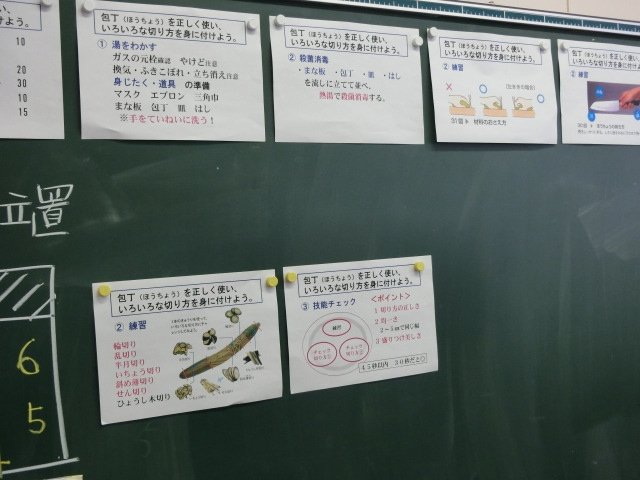 10
30
10
15
包丁(ほうちょう)を正しく使い、
いろいろな切り方を身に付けよう。
① 湯をわかす
ガスの元栓確認 やけど注意
換気・ふきこぼれ・立ち消え注意
身じたく・道具 の準備
マスク エプロン 三角巾
まな板 包丁 皿 はし
※手をていねいに洗う!
包丁(ほうちょう)を正しく使い、
いろいろな切り方を身に付けよう。
② 殺菌消毒
・まな板 ・包丁 ・皿 ・はし
を流しに立てて並べ、
熱湯で殺菌消毒する。
包丁(ほうちょう)を正しく使い、
いろいろな切り方を身に付けよう。
② 練習
包丁(ほうちょう)を正し
いろいろな切り方を身に
② 練習
立置
6
5
包丁(ほうちょう)を正しく使い、
いろいろな切り方を身に付けよう。
② 練習
輪切り
乱切り
半月切り
いちょう切り
斜め薄切り
せん切り
ひょうし木切り
包丁(ほうちょう)を正しく使い、
いろいろな切り方を身に付けよう。
③ 技能チェック
<ポイント>
1 切り方の正しさ
2 均一さ
2~5㎜で同じ幅
3 盛りつけ美しさ
練習
チェック
切り方①
チェック
切り方②
45秒以内 30秒だと◎